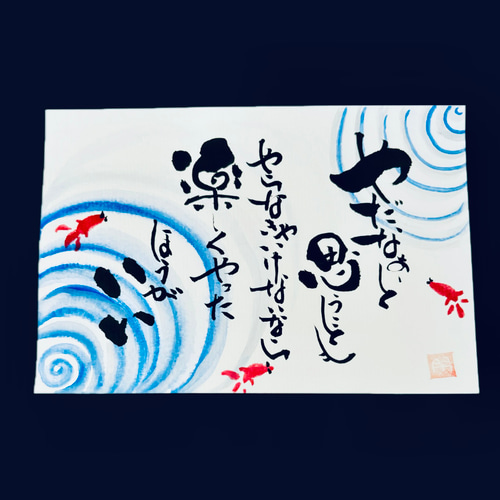 やだなぁーと
思うことも
やらなきゃいけないなら
楽しくやった
ほうが
いい